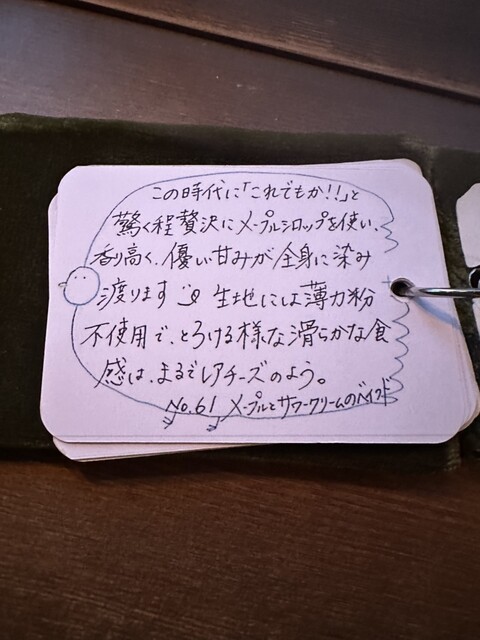 この時代に「これでもか!!」と
驚く程贅沢にメープルシロップを使い、
香り高く、優しい甘みが全身に染み
渡ります 生地には薄力粉
不使用で、とろける様な滑らかな食
感は、まるでレアチーズのよう。
No.61 メープルとサワークリームのベイクド